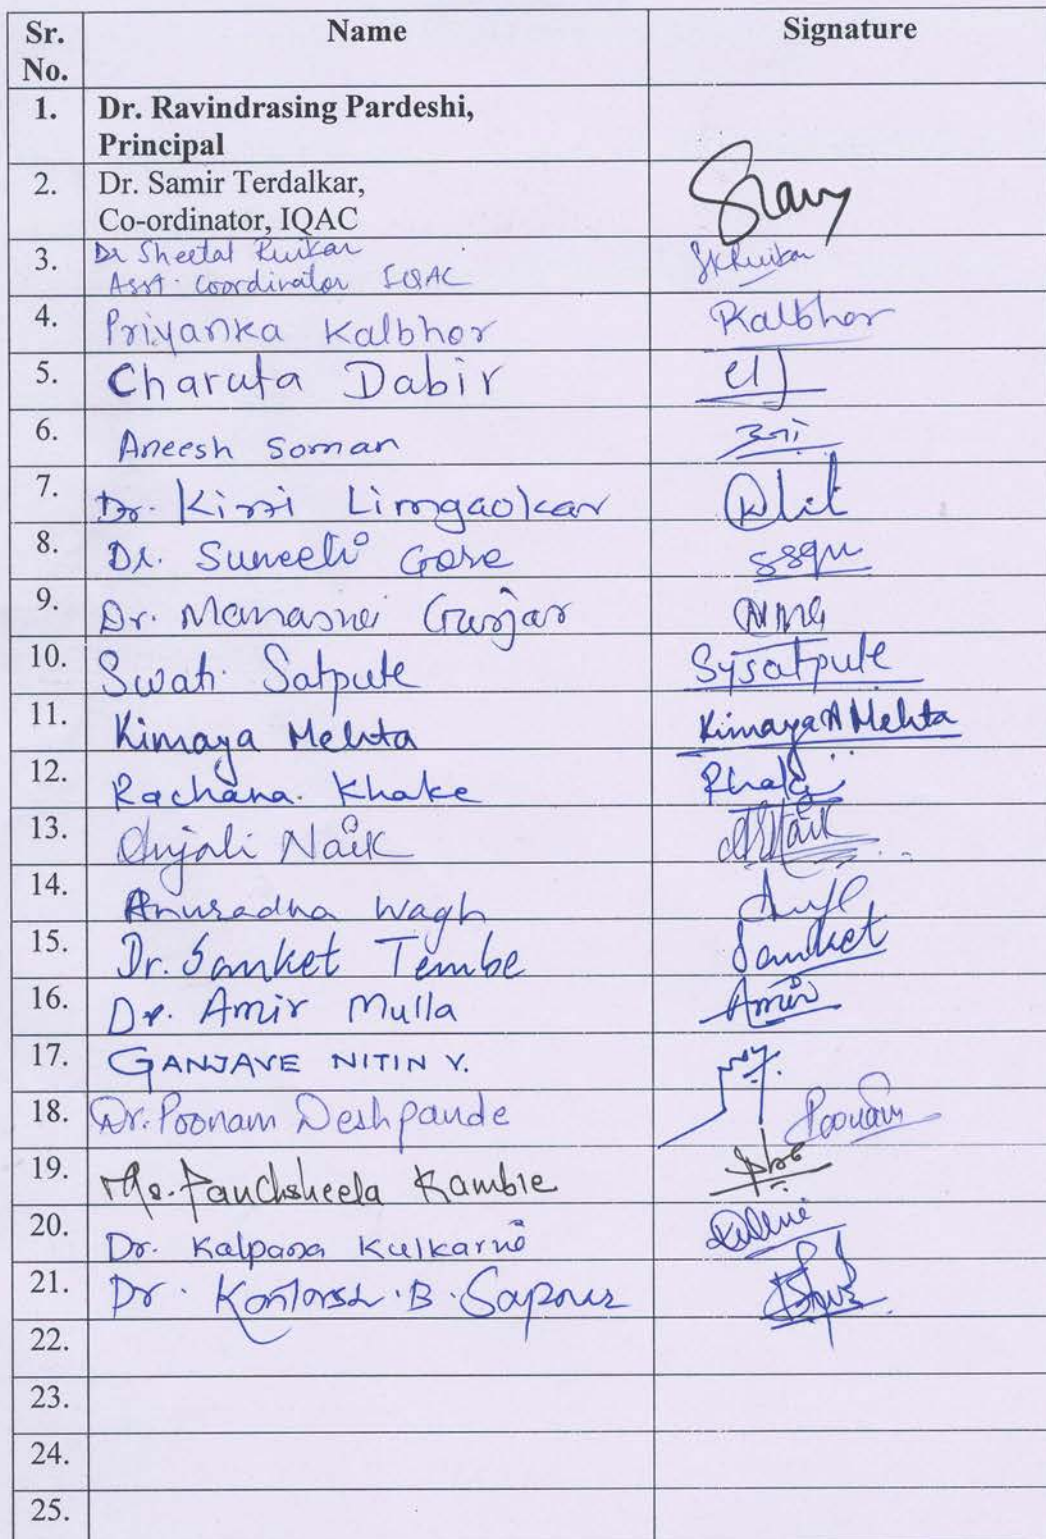 Sr. No. Name Signature
1. Dr. Ravindrasing Pardeshi,
Principal
2. Dr. Samir Terdalkar,
Co-ordinator, IQAC
3. Dr Sheetal Ruikar SKRuikar
Asst. Coordinator IQAC
4. Priyanka Kalbhor Kalbhor
5. Charuta Dabir
6. Aneesh Soman
7. Dr. Limgaokar
8. Dr. Suneeti Gore
9. Dr. Gurjar
10. Swati Satpute Sysatpute
11. Kimaya Mehta Kimaya A Mehta
12. Rachana. Khake
13. Anjali Naik
14. Anuradha Wagh
15. Dr. Sanket Tembe Sanket
16. Dr. Amir Mulla Amir
17. GANJAVE NITIN V.
18. Dr. Poonam Deshpande Poonam
19. Ms. Panchsheela Kamble
20. Dr. Kalpana Kulkarni
21. Dr. B.
22.
23.
24.
25.